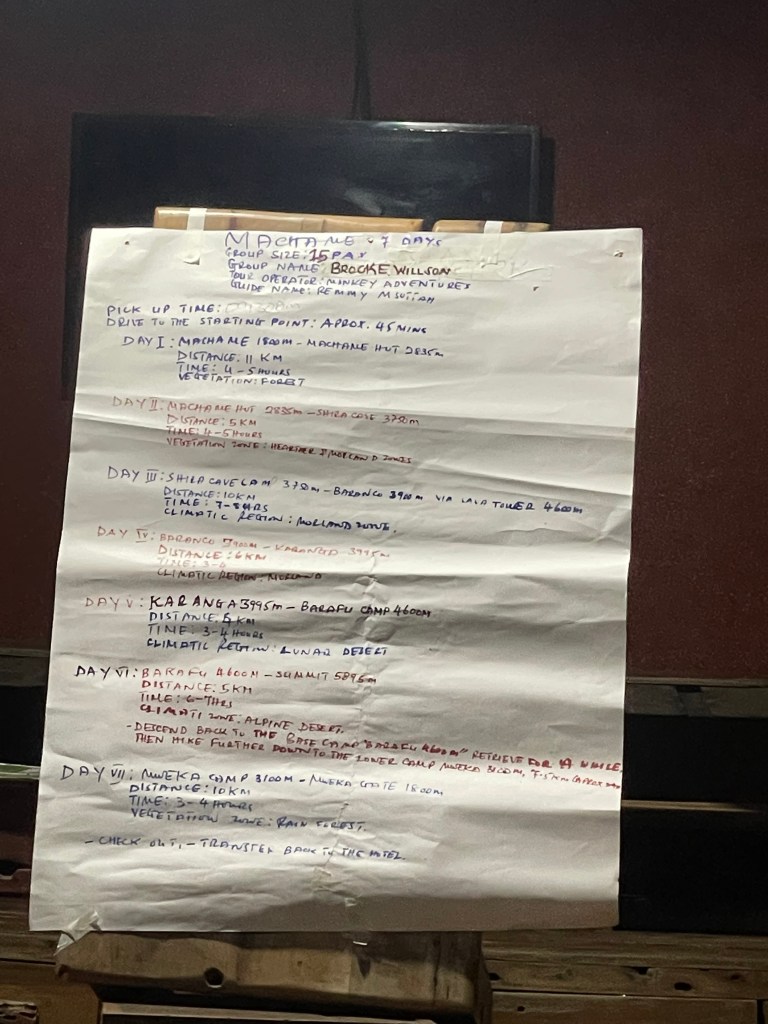 MACHAME 7 DAYS
GROUP SIZE: 15 PAX
GROUP NAME: BROCKE WILLSON
TOUR OPERATOR: MONKEY ADVENTURES
GUIDE NAME: REMMY MSUTTAH
PICK UP TIME:
DRIVE TO THE STARTING POINT: APROX. 45 MINS
DAY I: MACHAME 1800m - MACHAME HUT 2835m
DISTANCE: 11 KM
TIME: 4-5 HOURS
VEGETATION: FOREST
DAY II: MACHAME HUT 2835m - SHIRA CAVE 3750m
DISTANCE: 5 KM
TIME: 4-5 HOURS
VEGETATION ZONE: HEARTHER MORLAND ZONES
DAY III: SHIRA CAVE CAM 3750m - BARANCO 3900m VIA LAVA TOWER 4600m
DISTANCE: 10 KM
TIME: 7-8 HRS
CLIMATIC REGION: MORLAND ZONE.
DAY IV: BARANCO 3900m - KARANGA 3995m
DISTANCE: 6 KM
TIME: 3-
CLIMATIC REGION: MORLAND
DAY V: KARANGA 3995m - BARAFU CAMP 4600M
DISTANCE: KM
TIME: 3-4 HOURS
CLIMATIC REGION: LUNAR DESERT
DAY VI: BARAFU 4600M - SUMMIT 5895m
DISTANCE: 5KM
TIME: 6-7HRS
CLIMATI ZONE: ALPINE DESERT.
- DESCEND BACK TO THE BASE CAMP "BARAFU 4600m" RETRIEVE FOR A WHILE,
THEN HIKE FURTHER DOWN TO THE LOWER CAMP MWEKA 3100M,
DAY VII: MWEKA CAMP 3100M - MWEKA GATE 1800m
DISTANCE: 10KM
TIME: 3-4 HOURS
VEGETATION ZONE: RAIN FOREST.
- CHECK OUT, - TRANSFER BACK TO THE HOTEL.